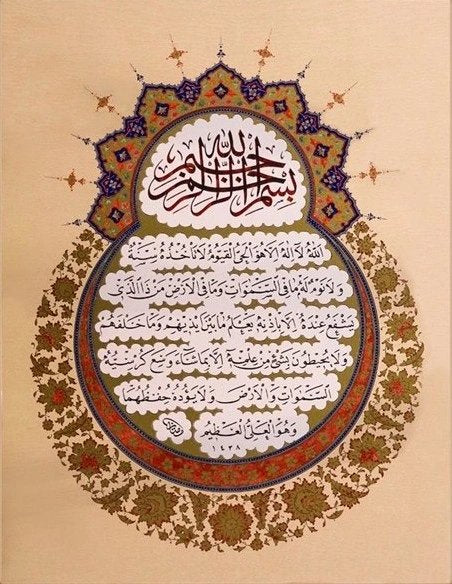 بسم الله الرحمن الرحيم
الله لا إله إلا هو الحي القيوم لا تأخذه سنة
ولا نوم له ما في السموات وما في الأرض من ذا الذي
يشفع عنده إلا بإذنه يعلم ما بين أيديهم وما خلفهم
ولا يحيطون بشيء من علمه إلا بما شاء وسع كرسيه
السموات والأرض ولا يؤده حفظهما
وهو العلي العظيم
١٤٣٨